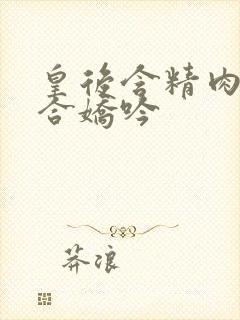 皇後含精肉
合嬌吟
莽浪